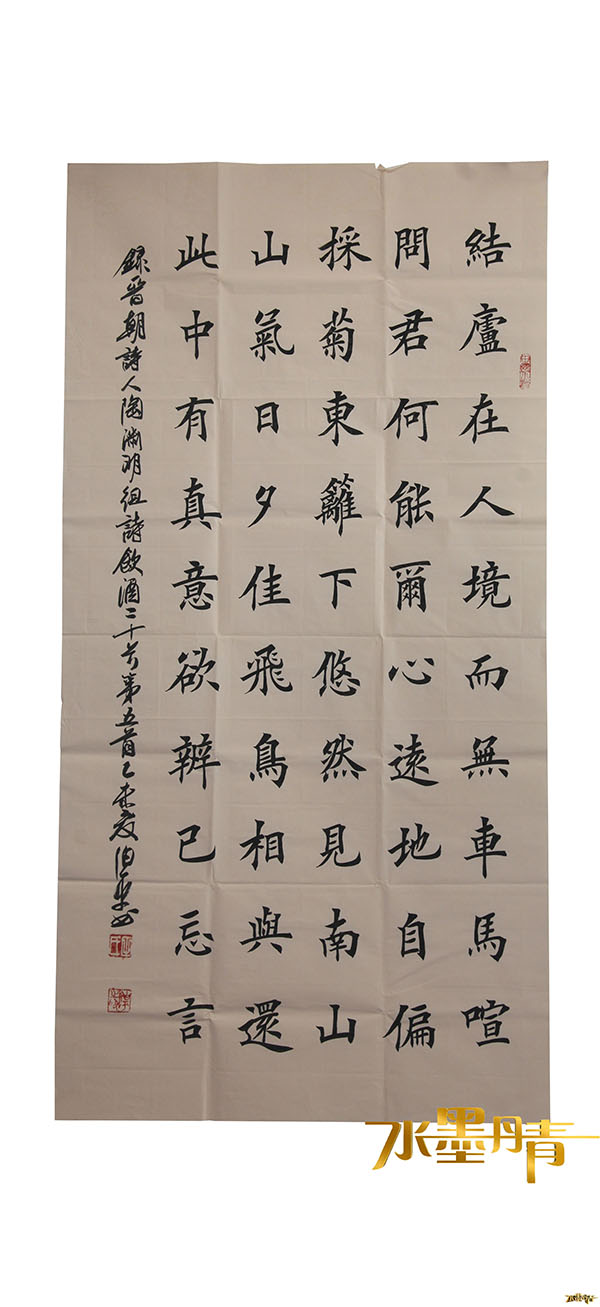 結廬在人境而無車馬喧
問君何能爾心遠地自偏
採菊東籬下悠然見南山
山氣日夕佳飛鳥相與還
此中有真意欲辨已忘言
録晉朝詩人陶淵明組詩飲酒二十首第五首乙未夏
水墨丹青
水墨丹青